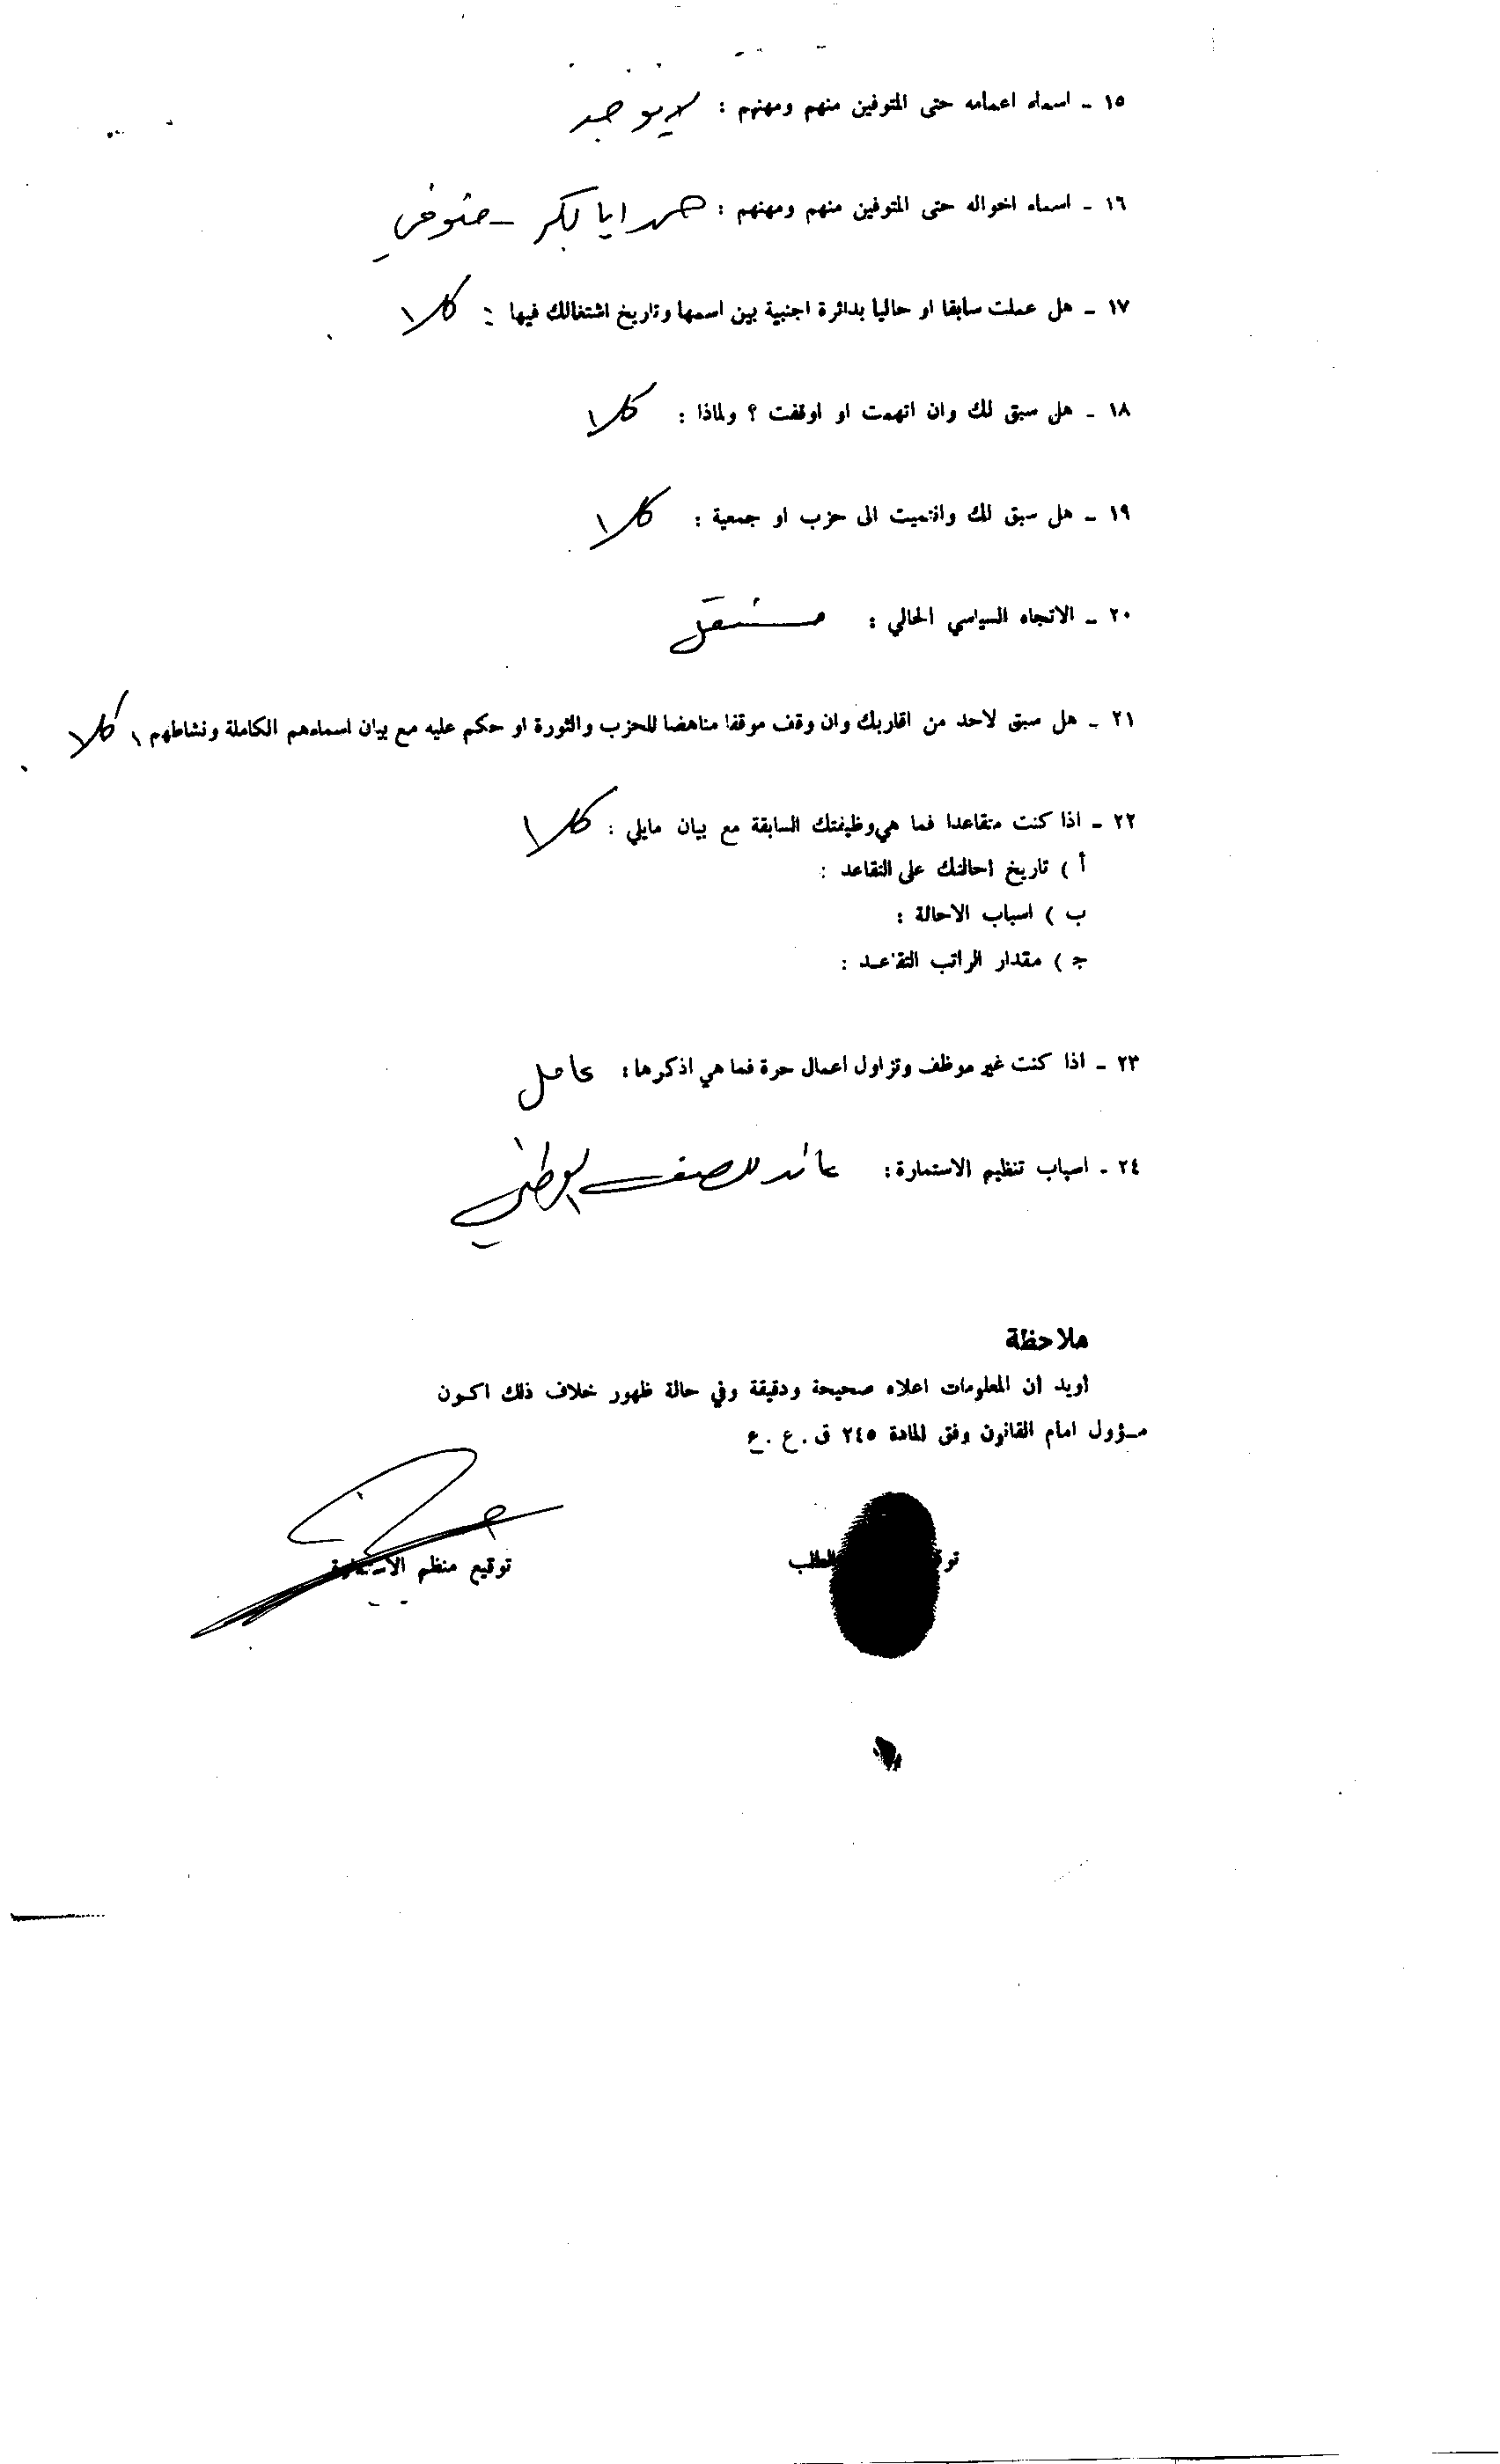 ١٥ - اسماء اعمامه حتى المتوفين منهم ومهنهم : لا يوجد
١٦ - اسماء اخواله حتى المتوفين منهم ومهنهم : بكر - متوفي
١٧ - هل عملت سابقا او حاليا بدائرة اجنبية بين اسمها وتاريخ اشتغالك فيها : كلا
١٨ - هل سبق لك وان اتهمت او اوقفت ؟ ولماذا : كلا
١٩ - هل سبق لك وانتميت الى حزب او جمعية : كلا
٢٠ - الاتجاه السياسي الحالي : مستقل
٢١ - هل سبق لاحد من اقاربك وان وقف موقفا مناهضا للحزب والثورة او حكم عليه مع بيان اسماءهم الكاملة ونشاطهم : كلا
٢٢ - اذا كنت متقاعدا فما هي وظيفتك السابقة مع بيان مايلي : كلا
أ ) تاريخ احالتك على التقاعد :
ب ) اسباب الاحالة :
ج ) مقدار الراتب التقاعد :
٢٣ - اذا كنت غير موظف وتزاول اعمال حرة فما هي اذكرها : عامل
٢٤ - اسباب تنظيم الاستمارة : عائد للصف الوطني
ملاحظة
أويد ان المعلومات اعلاه صحيحة ودقيقة وفي حالة ظهور خلاف ذلك اكون
مسؤول امام القانون وفق المادة ٢٤٥ ق . ع . ع
الطلب
توقيع منظم الاستمارة